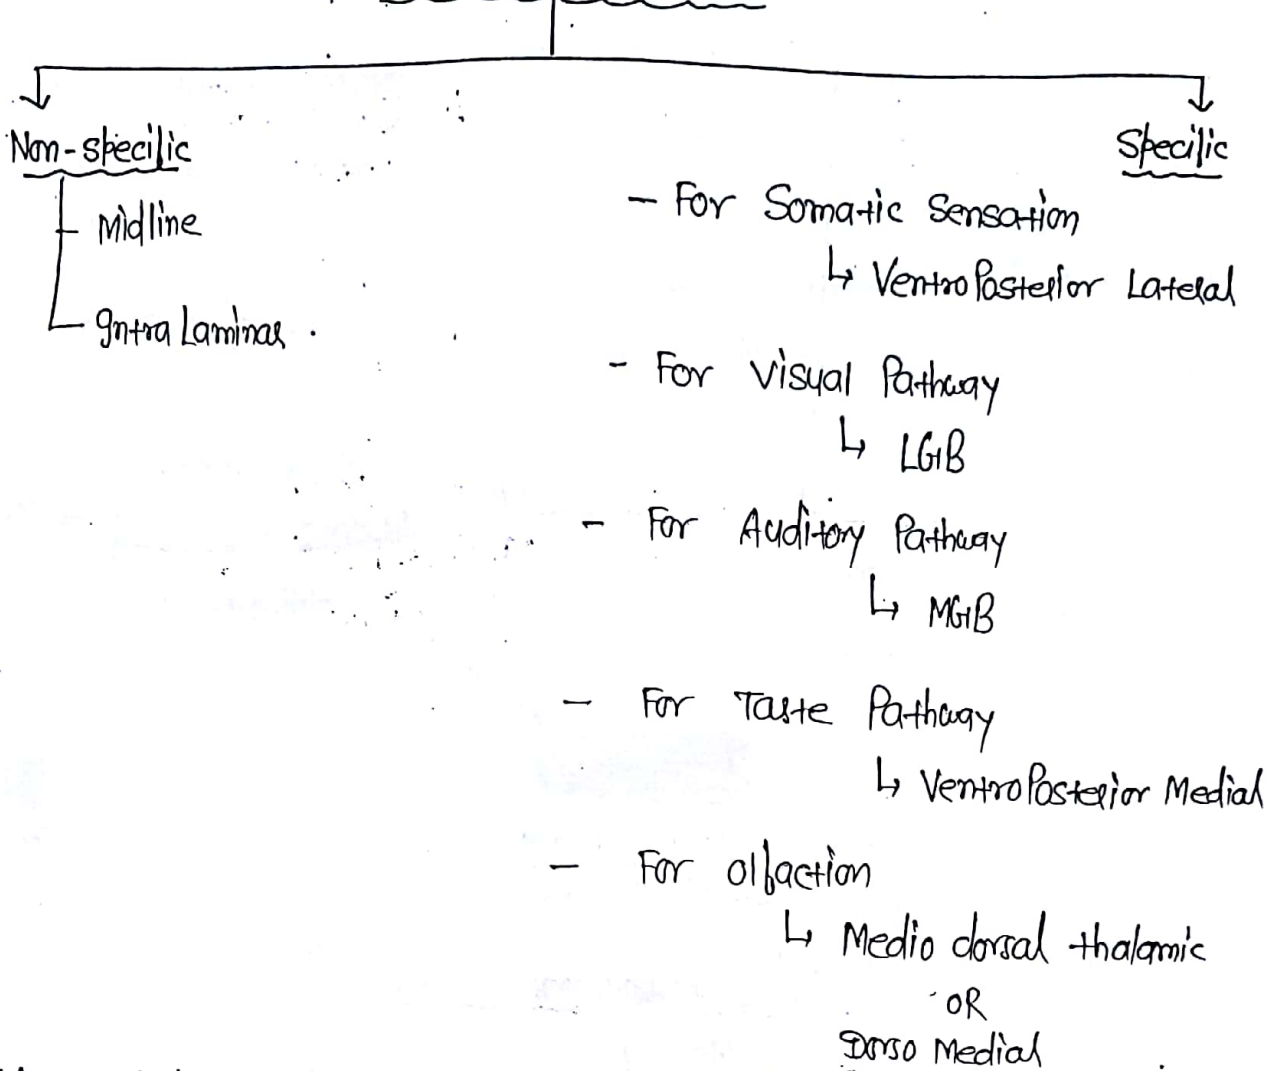 Non-specific
Midline
Intra Laminar.
Specific
- For Somatic Sensation
↳ VentroPosterior Lateral
- For Visual Pathway
↳ LGB
- For Auditory Pathway
↳ MGB
- For Taste Pathway
↳ VentroPosterior Medial
- For olfaction
↳ Medio dorsal thalamic
OR
Dorso Medial